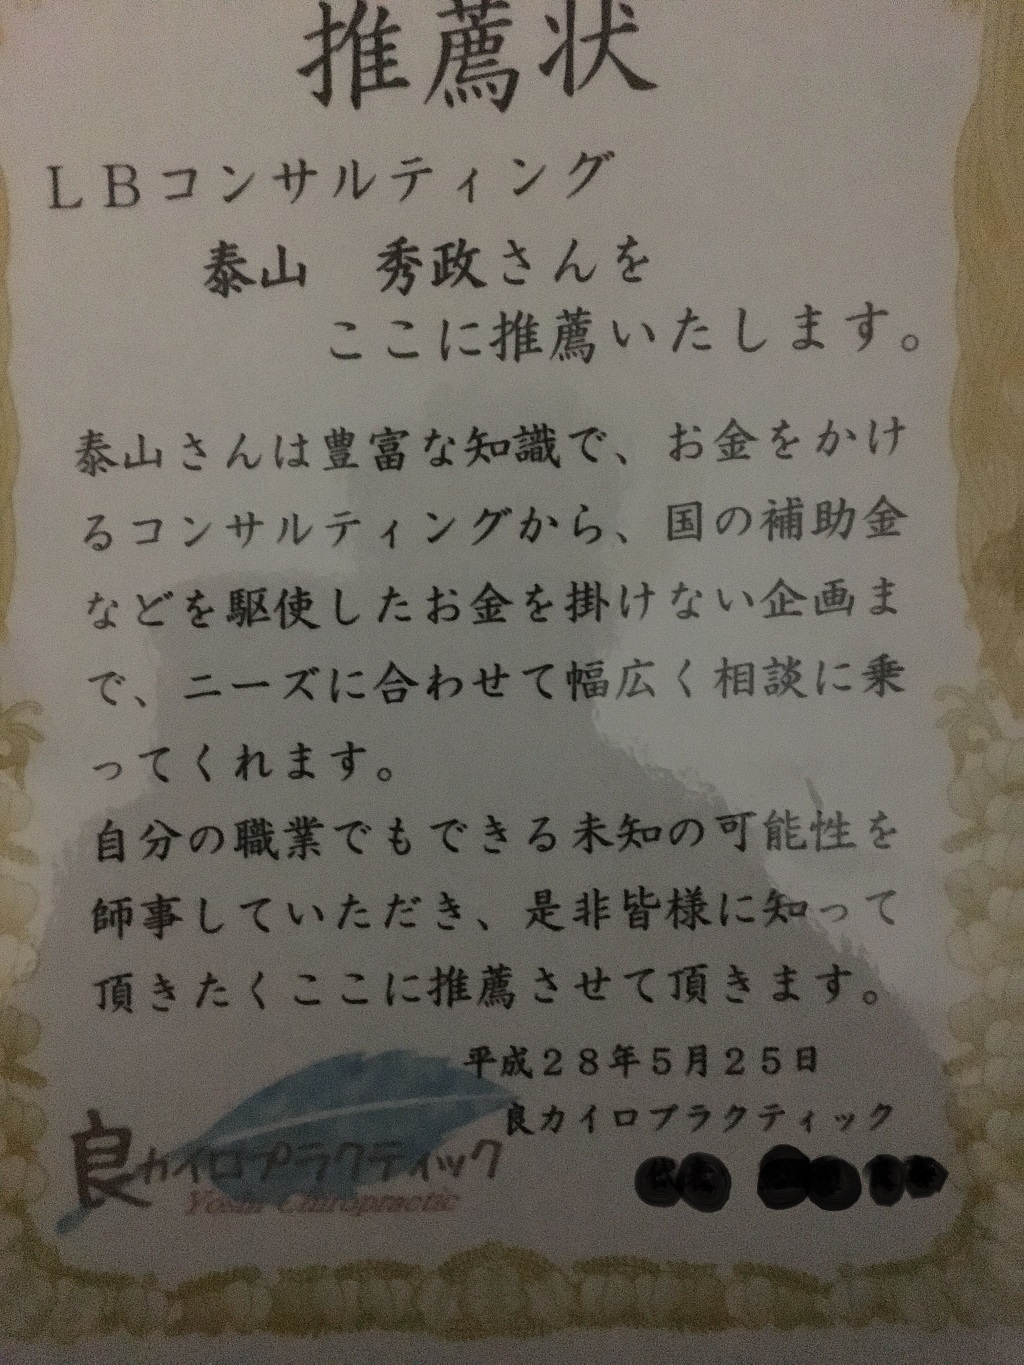 推薦状
ＬＢコンサルティング
泰山　秀政さんを
ここに推薦いたします。
泰山さんは豊富な知識で、お金をかけ
るコンサルティングから、国の補助金
などを駆使したお金を掛けない企画ま
で、ニーズに合わせて幅広く相談に乗
ってくれます。
自分の職業でもできる未知の可能性を
師事していただき、是非皆様に知って
頂きたくここに推薦させて頂きます。
平成２８年５月２５日
良カイロプラクティック
良カイロプラクティック
Yoshi Chiropractic